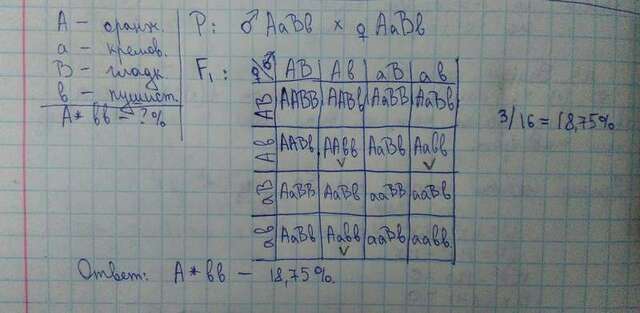 А – оранж.
а – кремов.
В – гладк.
в – пушист.
А* вв – ? %
Р: ♂ АаВв × ♀ АаВв
F₁:
♀ ♂ АВ Ав аВ ав
АВ ААВВ ААВв АаВВ АаВв
Ав ААВв ААвв АаВв Аавв
аВ АаВВ АаВв ааВВ ааВв
ав АаВв Аавв ааВв аавв
3/16 = 18,75%
Ответ: А* вв – 18,75%.